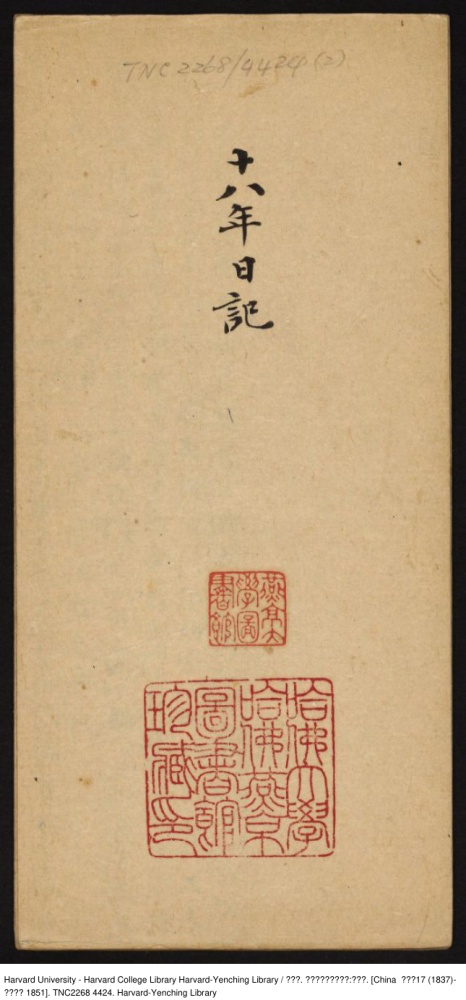 TNC 2268/4424 (2)
十八年日記
燕京大
學圖
書館
哈佛大學
哈佛燕京
圖書館
珍藏印
Harvard University - Harvard College Library Harvard-Yenching Library / ???. ?????????:???. [China  ???17 (1837)-
???? 1851]. TNC2268 4424. Harvard-Yenching Library